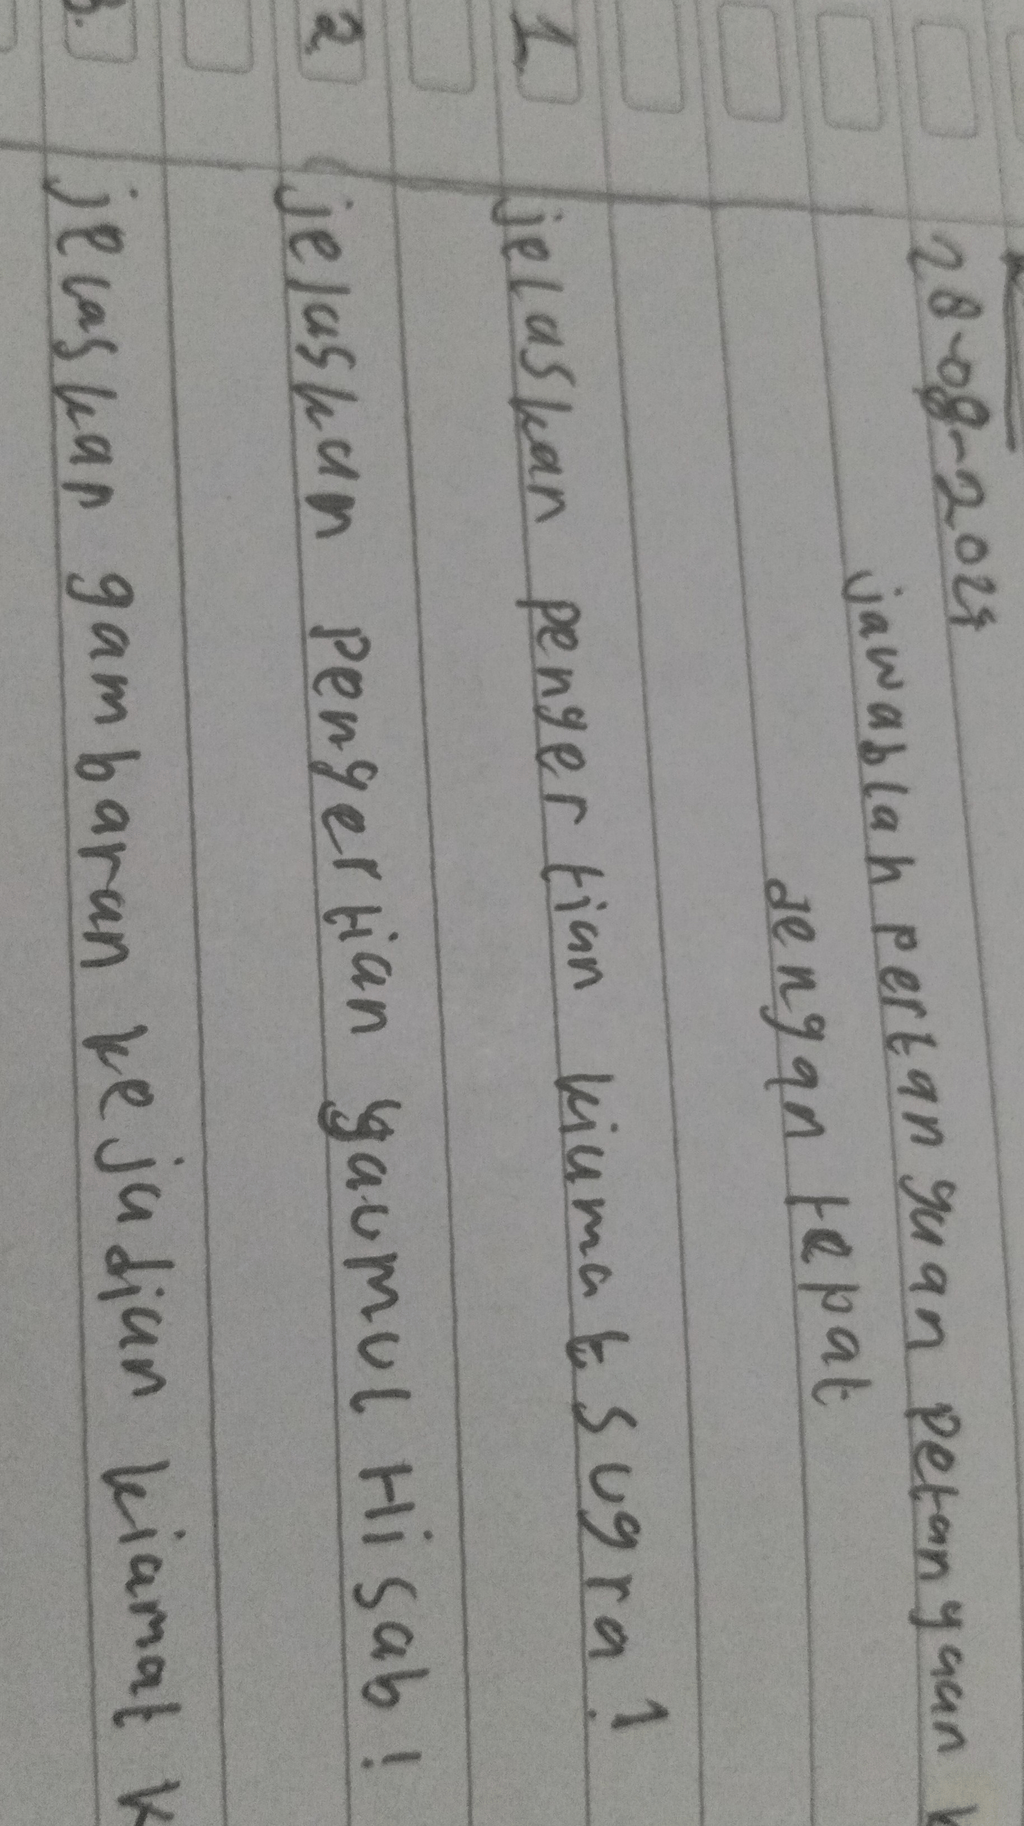 28-08-2024
jawablah pertanyaan petanyaan
dengan tepat
1 jelaskan pengertian kiamat sugra!
2 jelaskan pengertian yaumul Hisab!
3. jelaskan gambaran kejadian kiamat k